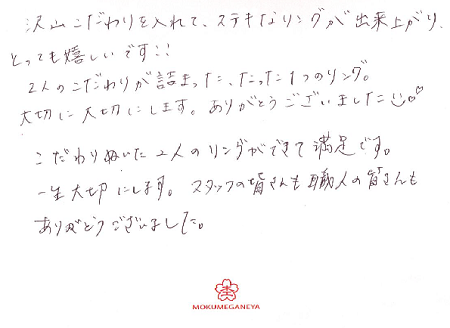 沢山こだわりを入れて、ステキなリングが出来上がり、
とっても嬉しいです!!
2人のこだわりが詰まった、たった1つのリング。
大切に大切にします。ありがとうございました
こだわりぬいた2人のリングができて満足です。
一生大切にします。スタッフの皆さんも職人の皆さんも
ありがとうございました。
MOKUMEGANEYA